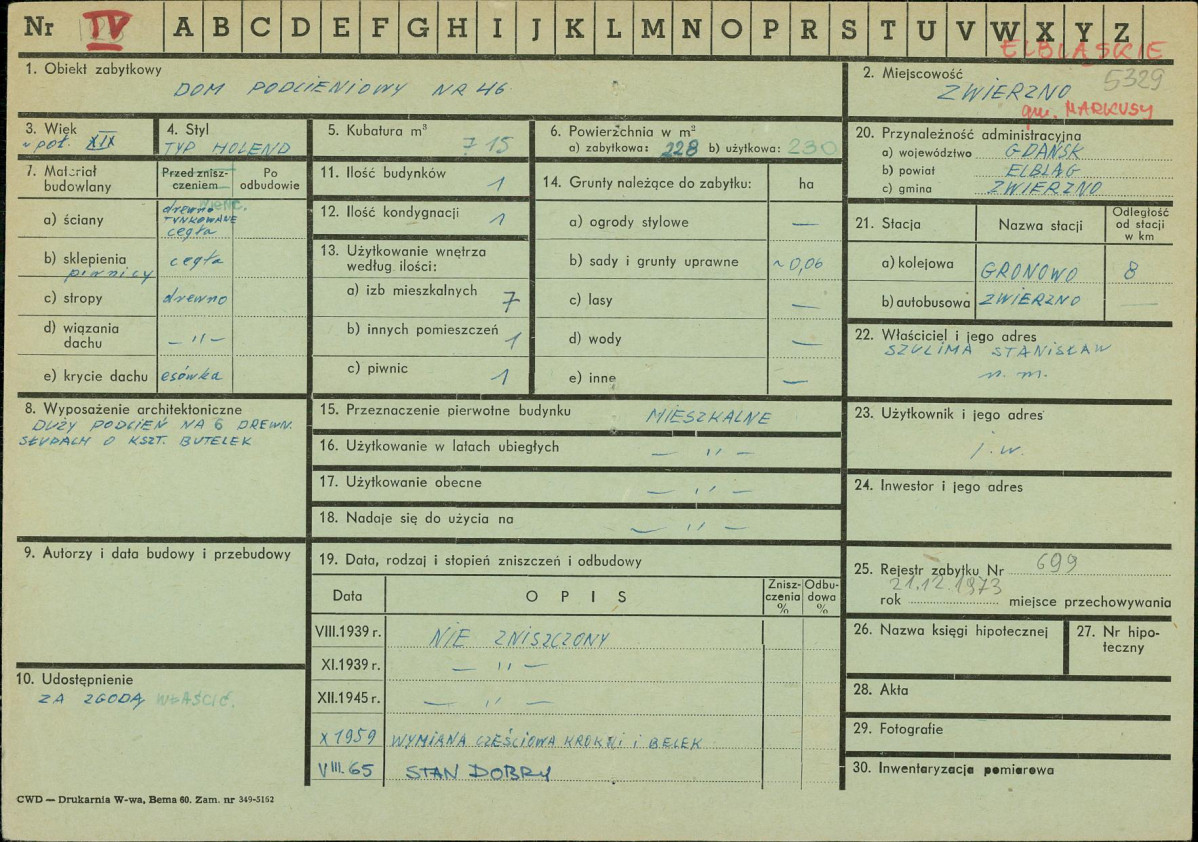 Nr IV A B C D E F G H I J K L M N O P R S T U V W X Y Z
ELBLĄSKIE
1. Obiekt zabytkowy
DOM PODCIENIOWY NR 46
2. Miejscowość 5329
ZWIERZNO
gm. MARKUSY
3. Wiek
~ poł. XIX
4. Styl
TYP HOLEND
5. Kubatura m³
715
6. Powierzchnia w m²
a) zabytkowa: 228 b) użytkowa: 230
7. Materiał budowlany
Przed znisz-
czeniem
Po
odbudowie
a) ściany
drewno wienc.
TYNKOWANE
cegła
b) sklepienia
piwnicy
cegła
c) stropy drewno
d) wiązania
dachu
— " —
e) krycie dachu esówka
8. Wyposażenie architektoniczne
DUŻY PODCIEŃ NA 6 DREWN.
SŁUPACH O KSZT. BUTELEK
9. Autorzy i data budowy i przebudowy
10. Udostępnienie
ZA ZGODĄ WŁAŚCIC.
11. Ilość budynków 1
12. Ilość kondygnacji 1
13. Użytkowanie wnętrza
według ilości:
a) izb mieszkalnych 7
b) innych pomieszczeń 1
c) piwnic 1
14. Grunty należące do zabytku: ha
a) ogrody stylowe —
b) sady i grunty uprawne ~ 0,06
c) lasy —
d) wody —
e) inne —
15. Przeznaczenie pierwotne budynku MIESZKALNE
16. Użytkowanie w latach ubiegłych — " —
17. Użytkowanie obecne — " —
18. Nadaje się do użycia na — " —
19. Data, rodzaj i stopień zniszczeń i odbudowy
Data
OPIS
Znisz-
czenia
%
Odbu-
dowa
%
VIII.1939 r. NIE ZNISZCZONY
XI.1939 r. — " —
XII.1945 r. — " —
X 1959 WYMIANA CZĘŚCIOWA KROKWI i BELEK
VIII.65 STAN DOBRY
20. Przynależność administracyjna
a) województwo GDAŃSK
b) powiat ELBLĄG
c) gmina ZWIERZNO
21. Stacja
Nazwa stacji
Odległość
od stacji
w km
a) kolejowa GRONOWO 8
b) autobusowa ZWIERZNO —
22. Właściciel i jego adres
SZULIMA STANISŁAW
n. m.
23. Użytkownik i jego adres
j.w.
24. Inwestor i jego adres
25. Rejestr zabytku Nr 699
21.12.1973
rok miejsce przechowywania
26. Nazwa księgi hipotecznej
27. Nr hipo-
teczny
28. Akta
29. Fotografie
30. Inwentaryzacja pomiarowa
CWD — Drukarnia W-wa, Bema 60. Zam. nr 349-5162